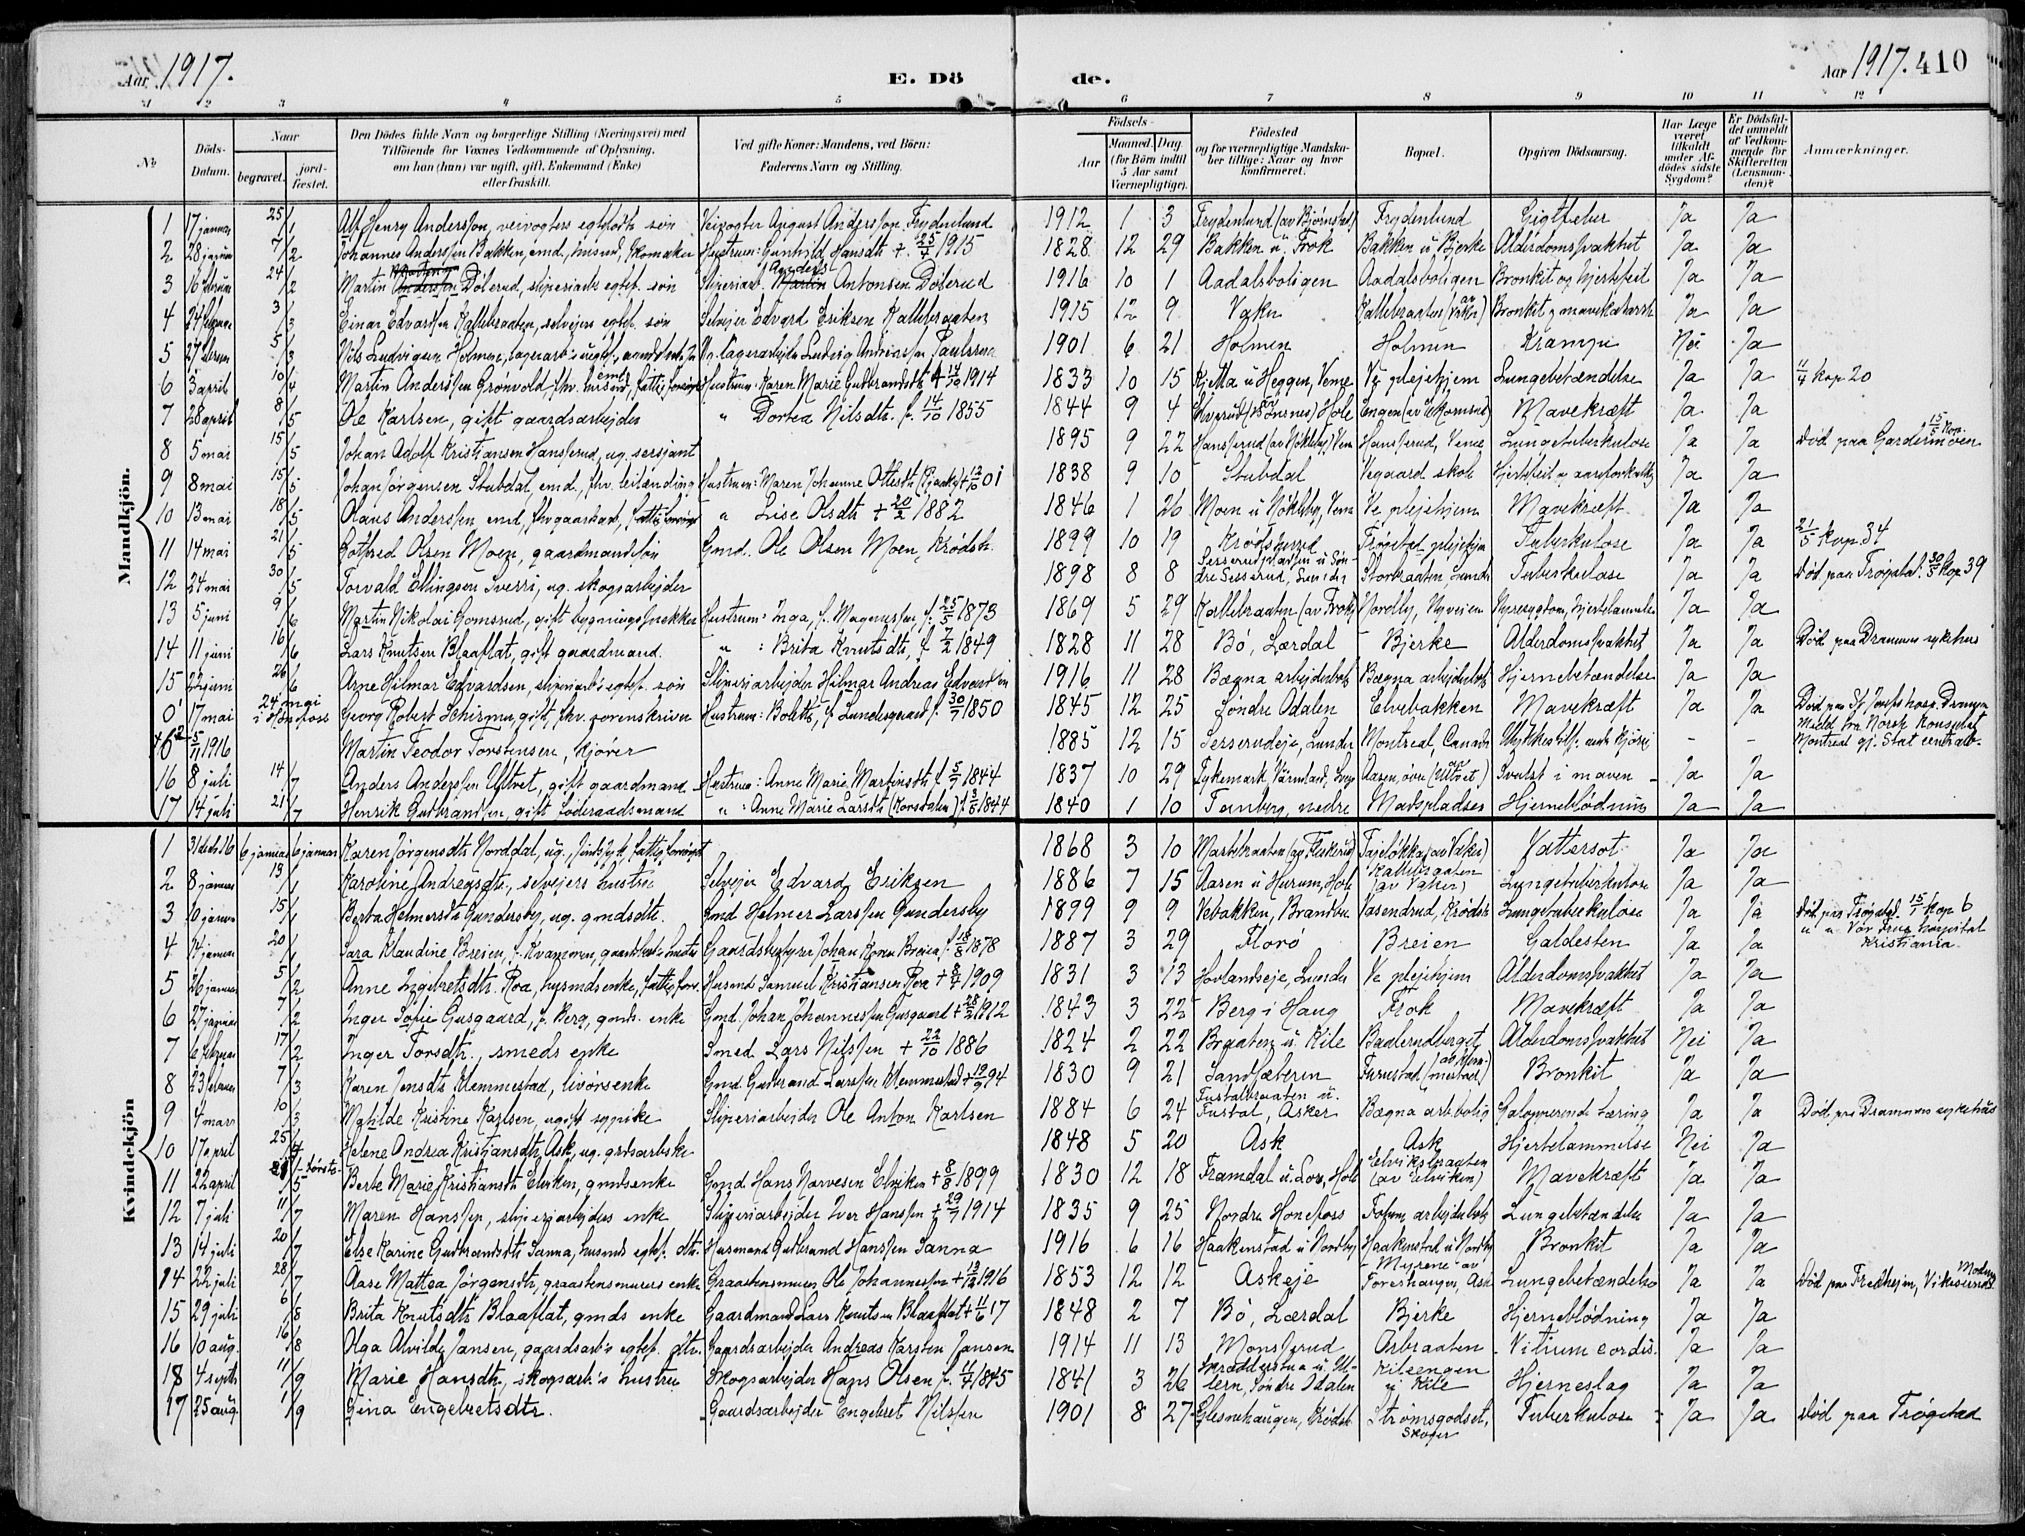 Aar 1917.
E. Dö de.
Aar 1917. 410
1 2 3 4 5 6 7 8 9 10 11 12
№
Döds-Datum.
Naar
begravet.
jord-fæstet.
Den Dödes fulde Navn og borgerlige Stilling (Næringsvei) med
Tilföiende for Voxnes Vedkommende af Oplysning,
om han (hun) var ugift, gift, Enkemand (Enke)
eller fraskilt.
Ved gifte Koner: Mandens, ved Börn:
Faderens Navn og Stilling.
Födsels-
Aar
Maaned. Dag
(for Börn indtil
5 Aar samt
Værnepligtige).
Födested
og for værnepligtige Mandska-
ber tillige: Naar og hvor
konfirmeret.
Bopæl.
Opgiven Dödsaarsag.
Har Læge
været
tilkaldt
under Af-
dödes sidste
Sygdom?
Er Dödsfal-
det anmeldt
af Vedkom-
mende for
Skifteretten
(Lensman-
den)?
Anmærkninger.
Mandkjön.
1 17 januar 25/1 Alf Henry Anderssen, veivogters egtefødte søn Veivogter August Anderssen Frydenlund 1912 1 3 Frydenlund (av Bjørnstad) Frydenlund Gigtfeber Ja Ja
2 28 januar 7/2 Johannes Anderssen Bakken, emd., husmd, skomaker Hustrum: Gunhild Hansdt. + 25/4 1915 1828 12 29 Bakken u. Frok Bakken u Bjerke Alderdomssvakhet Ja Ja
3 16 februar 24/2 Martin Døberud, sliperiarb. egtef. søn Sliperiarb. Anders Antonsen Døberud 1916 10 1 Aadalsboligen Aadalsboligen Bronkit og hjertefeil Ja Ja
4 24 februar 3/3 Einar Edvardsen Kallebraaten, selveiers egtef. søn Selveier Edvard Eriksen Kallebraaten 1915 12 9 Vaker Kallebraaten (av Vaker) Bronkit og mavekatarrh Ja Ja
5 27 februar 5/3 Nils Ludvigsen Holmen, Ug. lagerarbeider Ludvig Paulsrud 1901 6 21 Holmen Holmen Krampe Nei Ja
6 3 april 10/4 Martin Anderssen Grønvold, fhv. husmd, emd, fattig forsørget Hustrum: Karen Marie Gudbrandsdt. 1914 1833 10 15 Kjetta u Heggen, Veme Ve pleiehjem Lungebetændelse Ja Ja 11/4 kop 20
7 28 april 8/5 Ole Karlsen, gift gaardsarbeider " Dortea Nilsdt. f. 14/10 1855 1844 9 4 Hole Engen Mavekræft Ja Ja
8 5 mai 15/5 Johan Adolf Kristiansen Hansserud, ug. sersjant 1895 9 22 Hansserud (av Nøkleby) Vem Hansserud, Veme Lungetuberkulose Ja Ja Død paa Gardermoen 15/5 kop.
9 8 mai 15/5 Johan Jørgensen Stubdal, emd., fhv. leilænding Hustrum: Maren Johanne Olesdt. 01 1838 9 10 Stubdal Vegaard skole Hjertefeil og aareforkalkn. Ja Ja
10 13 mai 18/5 Olaus Anderssen emd, fhv gaardsarb, fattig forsørget " Lise Olsdt + 20/2 1882 1846 1 26 Moen u Nøkleby, Veme Ve pleiehjem Mavekræft Ja Ja
11 14 mai 21/5 Gotfred Olsen Moen, gaardmandssøn Gmd. Ole Olsen Moen, Krødsh. 1899 10 19 Krødsherred Trøgstad pleiehjem Tuberkulose Ja Ja 21/5 kop. 34
12 24 mai 30/5 Torvald Ellingsen Sverri, ug. skogsarbeider 1898 8 8 Sesserudpladsen u Søndre Sesserud, Lunder Storbraaten Lunder Tuberkulose Ja Ja Død paa Trøgstad. 30/5 kop 39
13 5 juni 9/6 Martin Nikolai Gomsrud, gift bygningssnekker Hustrum: Inga, f. Magnussen, f. 25/5 1873 1869 5 29 Kallebraaten (av Frok) Norolby, Nyveien Nyresygdom, hjertelammelse Ja Ja
14 11 juni 16/6 Lars Knutsen Blaaflat, gift gaardmand. " : Brita Knutsdt, f. 7/2 1849 1828 11 28 Bö, Lærdal Bjerke Alderdomssvakhet Ja Ja Død paa Drammen sykehus
15 22 juni 26/6 Arne Hilmar Edvardsen, sliperiarb's egtef. søn Sliperiarbeider Hilmar Andreas Edvardsen 1916 11 28 Bægna arbeiderbol. Bægna arbeiderbol. Hjernebetændelse Ja Ja
0 17 mai 24 mai i Hønefoss Georg Robert Schirmer, gift, fhv. sorenskriver Hustrum: Bolette, f. Lundesgaard f. 30/7 1850 1845 12 25 Søndre Odalen Elvebakken Mavekræft Ja Ja Død paa St Josefs hosp. Drammen
5/11 1916 Martin Teodor Torstensen, kjører 1885 12 15 Sesserudeje, Lunder Montreal, Canada Ulykkestilf. under kjøring - - Meld. fra Norsk Konsulat Montreal gj. Stat.centralb.
16 8 juli 14/7 Anders Anderssen Ultvet, gift gaardmand Hustrum: Anne Marie Martinsdt f. 5/7 1844 1837 10 29 Fykemark, Värmland, Sverige Aasen, øvre (av Ultvet) Svulst i maven - Ja Ja
17 14 juli 21/7 Henrik Gudbrandsen, gift føderaadsmand " : Anne Marie Larsdt (Torsdalen) f. 1844 1840 1 10 Tanberg, nedre Madspladsen Hjerneblødning Ja Ja
Kvindekjön
1 31 decbr 16 6 januar 6 januar Karen Jørgensdt. Norddal, ug. sindssyk, fattig forsørget 1868 3 10 Markebraaten Fajeløkka (av Vaker) Vattersot Ja Ja
2 8 januar 13/1 Karoline Andreasdt., selveiers hustru Selveier Edvard Eriksen 1886 7 15 Aasen u Hurum, Hole Kallebraaten (av Vaker) Lungetuberkulose Ja Ja
3 10 januar 15/1 Berta Helmersdt. Gundersby, ug. gmdsdt. Gmd Helmer Larssen Gundersby 1899 9 9 Vebakken, Brandbu Vasendrud, Krødsh Lungetuberkulose Ja Ja Død paa Trøgstad. 15/1 kop 6
4 14 januar 20/1 Sara Klaudine Breien, f. Kvammen, Gaardsbestyrer Johan Breien f. 1878 1887 3 29 Florø Breien Galdesten Ja Ja " " Vor Frue hospital Kristiania
5 26 januar 5/2 Anne Ingebretsdt. Roa, husmds enke, fattig fors. Husmd Samuel Kristiansen Roa + 1909 1831 3 13 Hovlandseje, Lunder Ve pleiehjem Alderdomssvakhet Ja Ja
6 27 januar 7/2 Inger Sofie Gusgaard, f. Berg, gmds. enke Gmd. Johan Johannessen Gusgaard + 28/2 1912 1843 3 22 Berg i Haug Frok Mavekræft Ja Ja
7 6 februar 17/2 Inger Torsdt., smeds enke Smed Lars Nilssen + 22/10 1886 1824 2 22 Braaten u. Kile Baalerudberget Alderdomssvakhet Nei Ja
8 23 februar 7/3 Karen Jensdt. Klemmestad, livørsenke Gmd Gudbrand Larssen Klemmestad + 12/9 94 1830 9 21 Sandsæteren Furustad Bronkit Ja Ja
9 4 mars 10/3 Mathilde Kristine Karlsen, ugift sypike Sliperiarbeider Ole Anton Karlsen 1884 6 24 Fustalbraaten u. Fustal, Asker Bægna arb.bolig Galopperende tæring Ja Ja Død paa Drammens sykehus
10 17 april 25/4 Helene Andrea Kristiansdt. Ask, ug. grdsarbske 1848 5 20 Ask Ask Hjertelammelse Nei Ja
11 22 april Berte Marie Kristiansdt Elviken, gmdsenke Gmd Hans Narvesen Elviken + 8/8 1899 1830 12 18 Framdal u. Lov, Hole Elviksbraaten (av Elviken) Mavekræft Ja Ja
12 7 juli 11/7 Maren Hanssen, sliperiarbeiders enke Sliperiarbeider Iver Hanssen + 29/7 1914 1835 9 25 Nordre Hønefoss Fossum arbeiderbol. Lungebetændelse Ja Ja
13 14 juli 20/7 Else Karine Gudbrandsdt Sanna, husmds egtef. dtr. Husmand Gudbrand Hanssen Sanna 1916 6 16 Haakenstad u Nordby Haakenstad u Nordby Bronkit Ja Ja
14 22 juli 28/7 Aase Mattea Jørgensdt, graastensmurers enke Graastensmurer Ole Johannessen + 13/12 1916 1853 12 12 Askeje Myrene av Toreshaugen, Ask Lungebetændelse Ja Ja Død paa Fredheim, Vikesund Modum
15 29 juli 6/8 Brita Knutsdt Blaaflat, gmds enke Gaardmand Lars Knutsen Blaaflat + 11/6 17 1848 2 7 Bö, Lærdal Bjerke Hjerneblødning Ja Ja
16 10 aug. 16/8 Olga Alvilde Jansen, gaardsarb's egtef. dtr. Gaardsarbeider Andreas Karsten Jansen 1914 11 13 Monsserud Orbraaten Vitium cordis. Ja Ja
18 4 septb 11/9 Marie Hansdt., skogsarb.'s hustru Skogsarbeider Hans Olsen f. 11/4 1845 1841 3 26 Skredderstua u. Ullern, Søndre Odalen Kileengen u. Kile Hjerneslag Ja Ja
17 25 aug. 1/9 Gina Engebretsdtr. Gaardsarbeider Engebret Nilssen 1901 8 27 Glesnehaugen, Krødsh. Strømsgodset, Skoger Tuberkulose Ja Ja Død paa Trøgstad